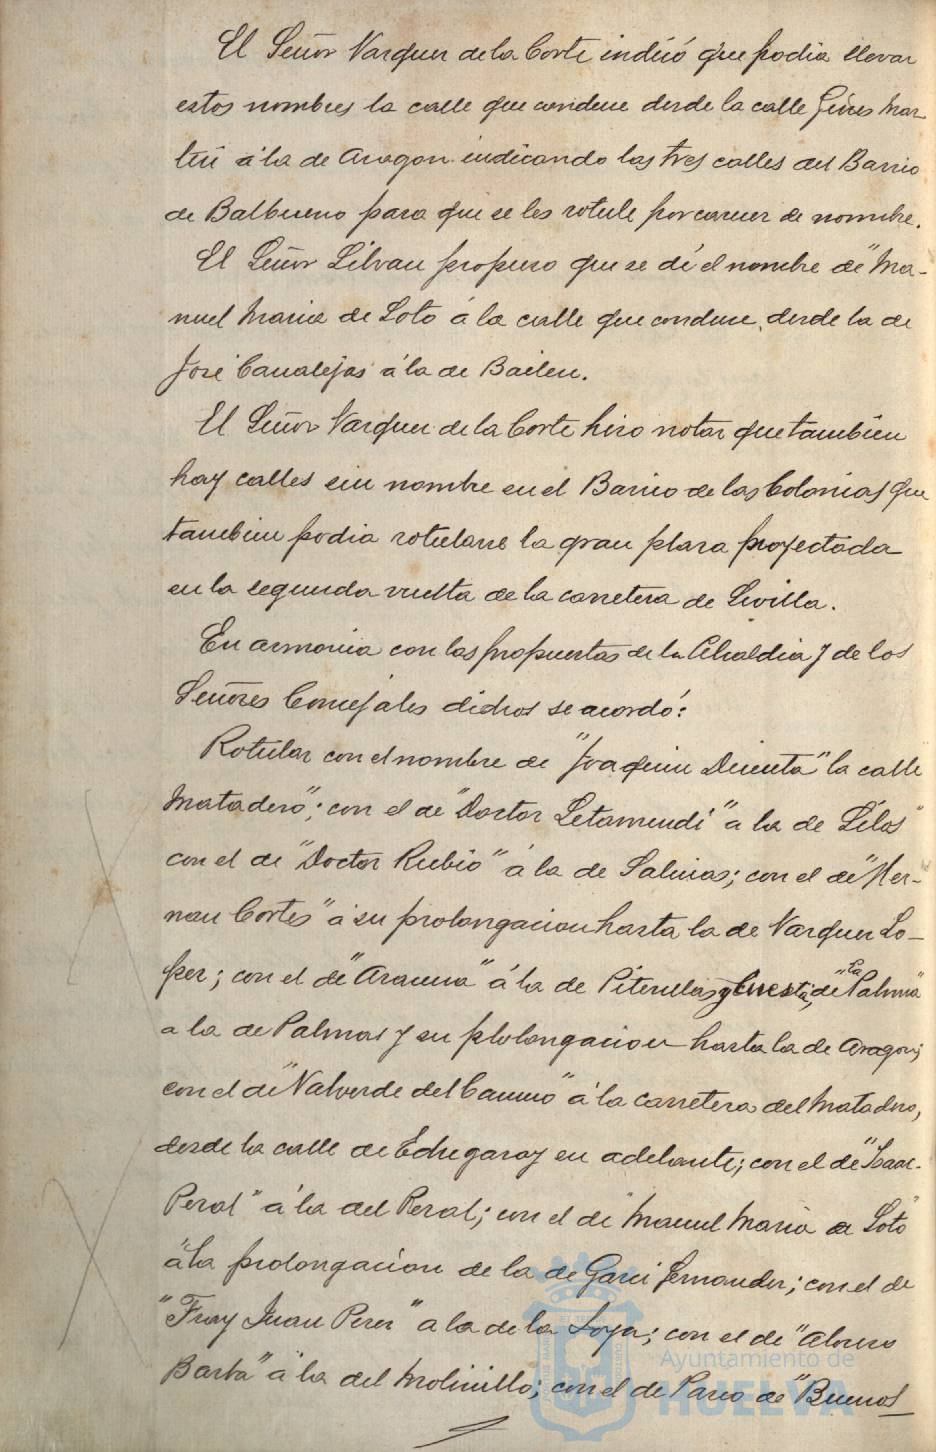 El Señor Vazquez de la Corte indicó que podia llevar
estos nombres la calle que conduce desde la calle Gines Mar-
tin á la de Aragon indicando las tres calles del Barrio
de Balbueno para que se les rotule por carecer de nombre.
El Señor Silvan propuso que se dé el nombre de "Ma-
nuel Maria de Soto á la calle que conduce, desde la de
José Canalejas á la de Bailen.
El Señor Vazquez de la Corte hizo notar que tambien
hay calles sin nombre en el Barrio de las Colonias y que
tambien podia rotularse la gran plaza proyectada
en la segunda vuelta de la carretera de Sevilla.
En armonia con las propuestas de la Alcaldia y de los
Señores Concejales dichos se acordó:
Rotular con el nombre de "Joaquin Dicenta" la calle
Matadero"; con el de "Doctor Letamendi" a la de Silos"
con el de "Doctor Rubio" á la de Salinas; con el de "Her-
nan Cortes" á su prolongacion hasta la de Vazquez Lo-
pez; con el de "Aracena" á la de Piterillas y Cuesta; de "La Palma"
a la de Palmas y su plolongacion hasta la de Aragon;
con el de "Valverde del Camino" á la carretera del Matadero,
desde la calle de Echegaray en adelante; con el de "Isaac-
Peral" á la del Peral; con el de Manuel Maria de Soto"
á la prolongacion de la de Garci Fernandez; con el de
"Fray Juan Perez" a la de la Soya; con el de "Alonso
Barba" á la del Molinillo; con el de Paseo de "Buenos
Ayuntamiento de
HUELVA